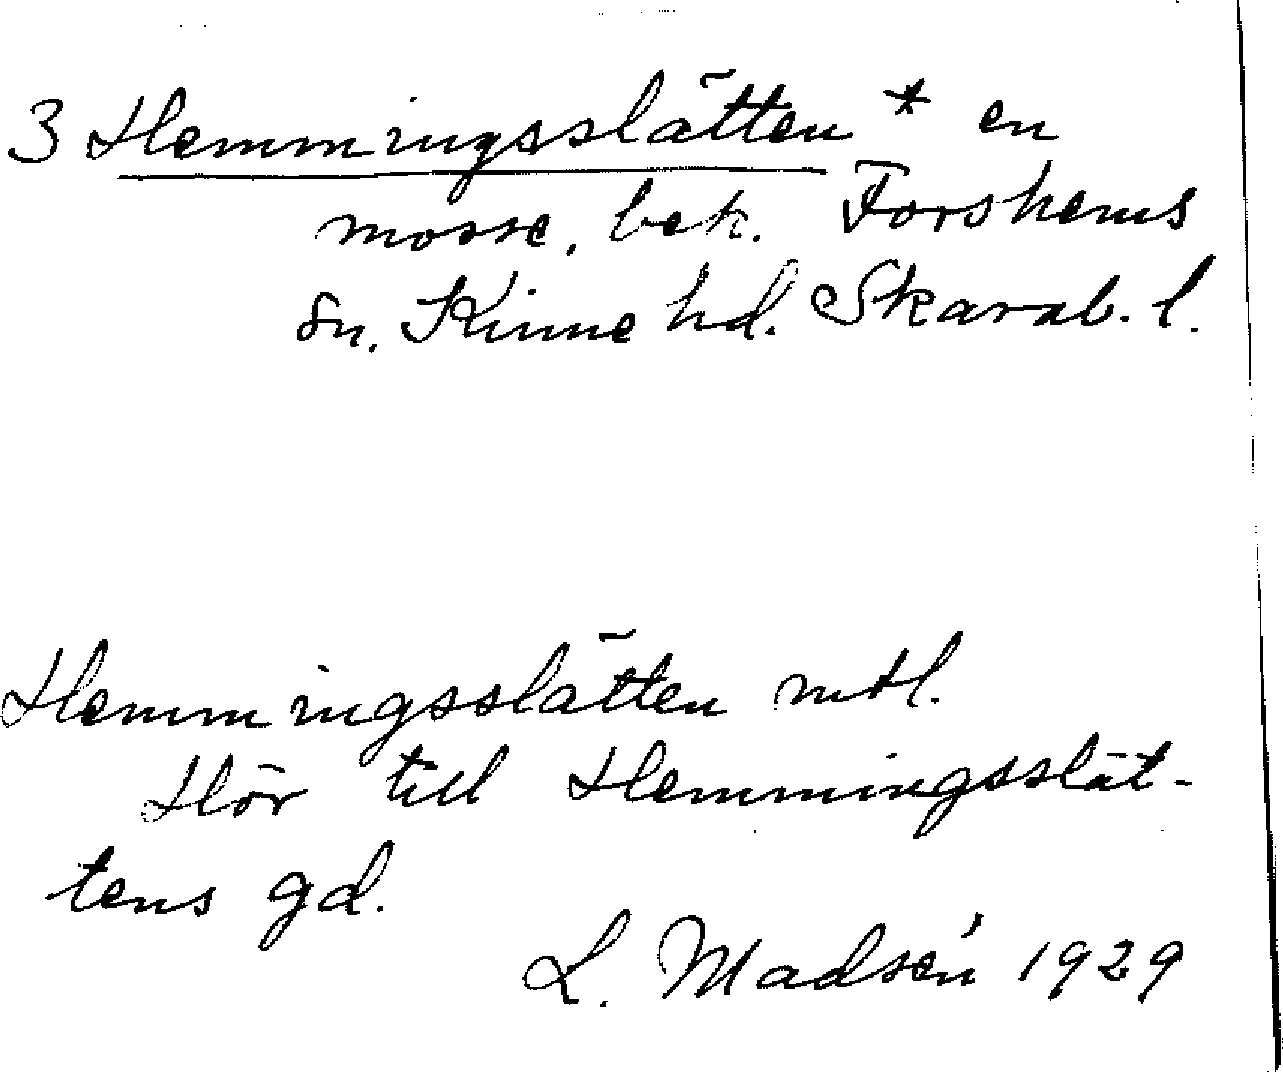 3 Hemmingsslätten * en
mosse, bek. Forshems
sn. Kinne hd. Skarab. l.
Hemmingsslätten mtl.
Hör till Hemmingsslät-
tens gd.
L. Madsén 1929